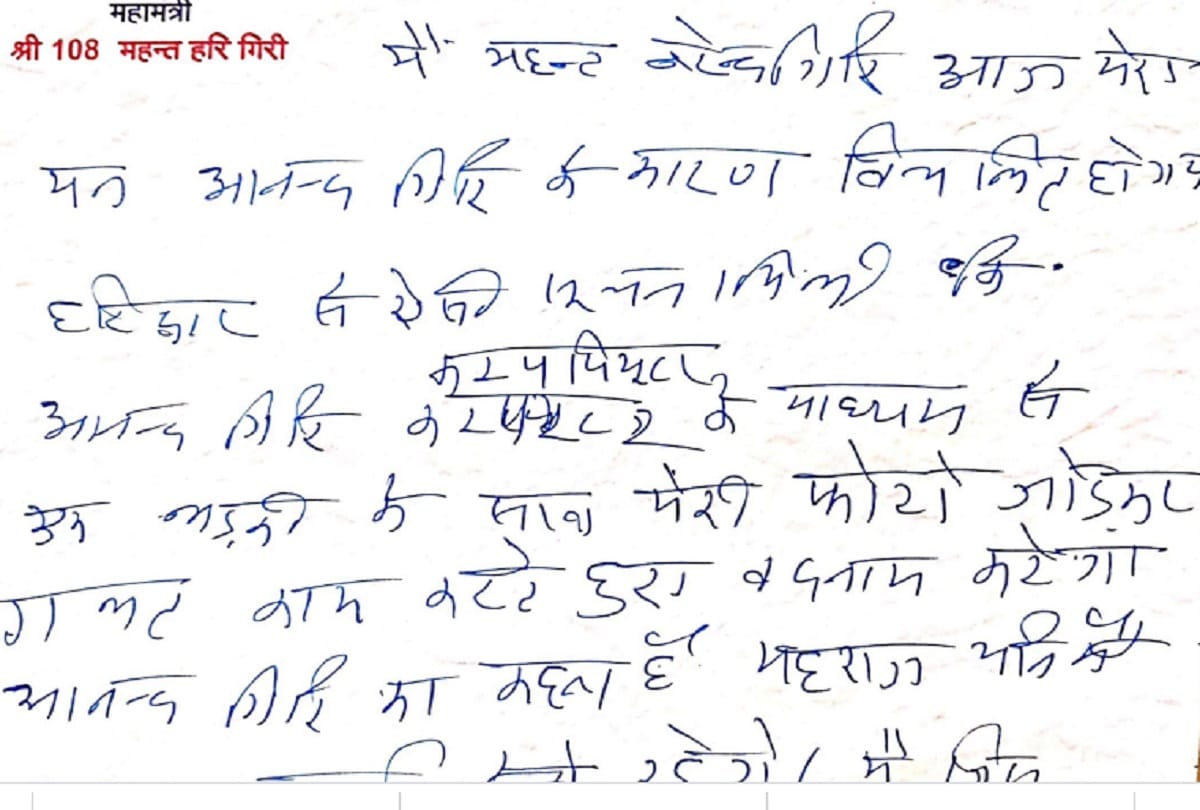 महामंत्री
श्री 108 महन्त हरि गिरी
मैं महन्त नरेन्द्र गिरि आज मेरा
मन आनन्द गिरि के कारण विचलित हो गय
हरिद्वार से ऐसी सूचना मिली कि
कम्पयियूटर
आनन्द गिरि के माध्यम से
एक लड़की के साथ मेरी फोटो जोड़कर
गलत काम करते हुए बदनाम करेगा
आनन्द गिरि का कहना है महराज यानि
मैं जिस